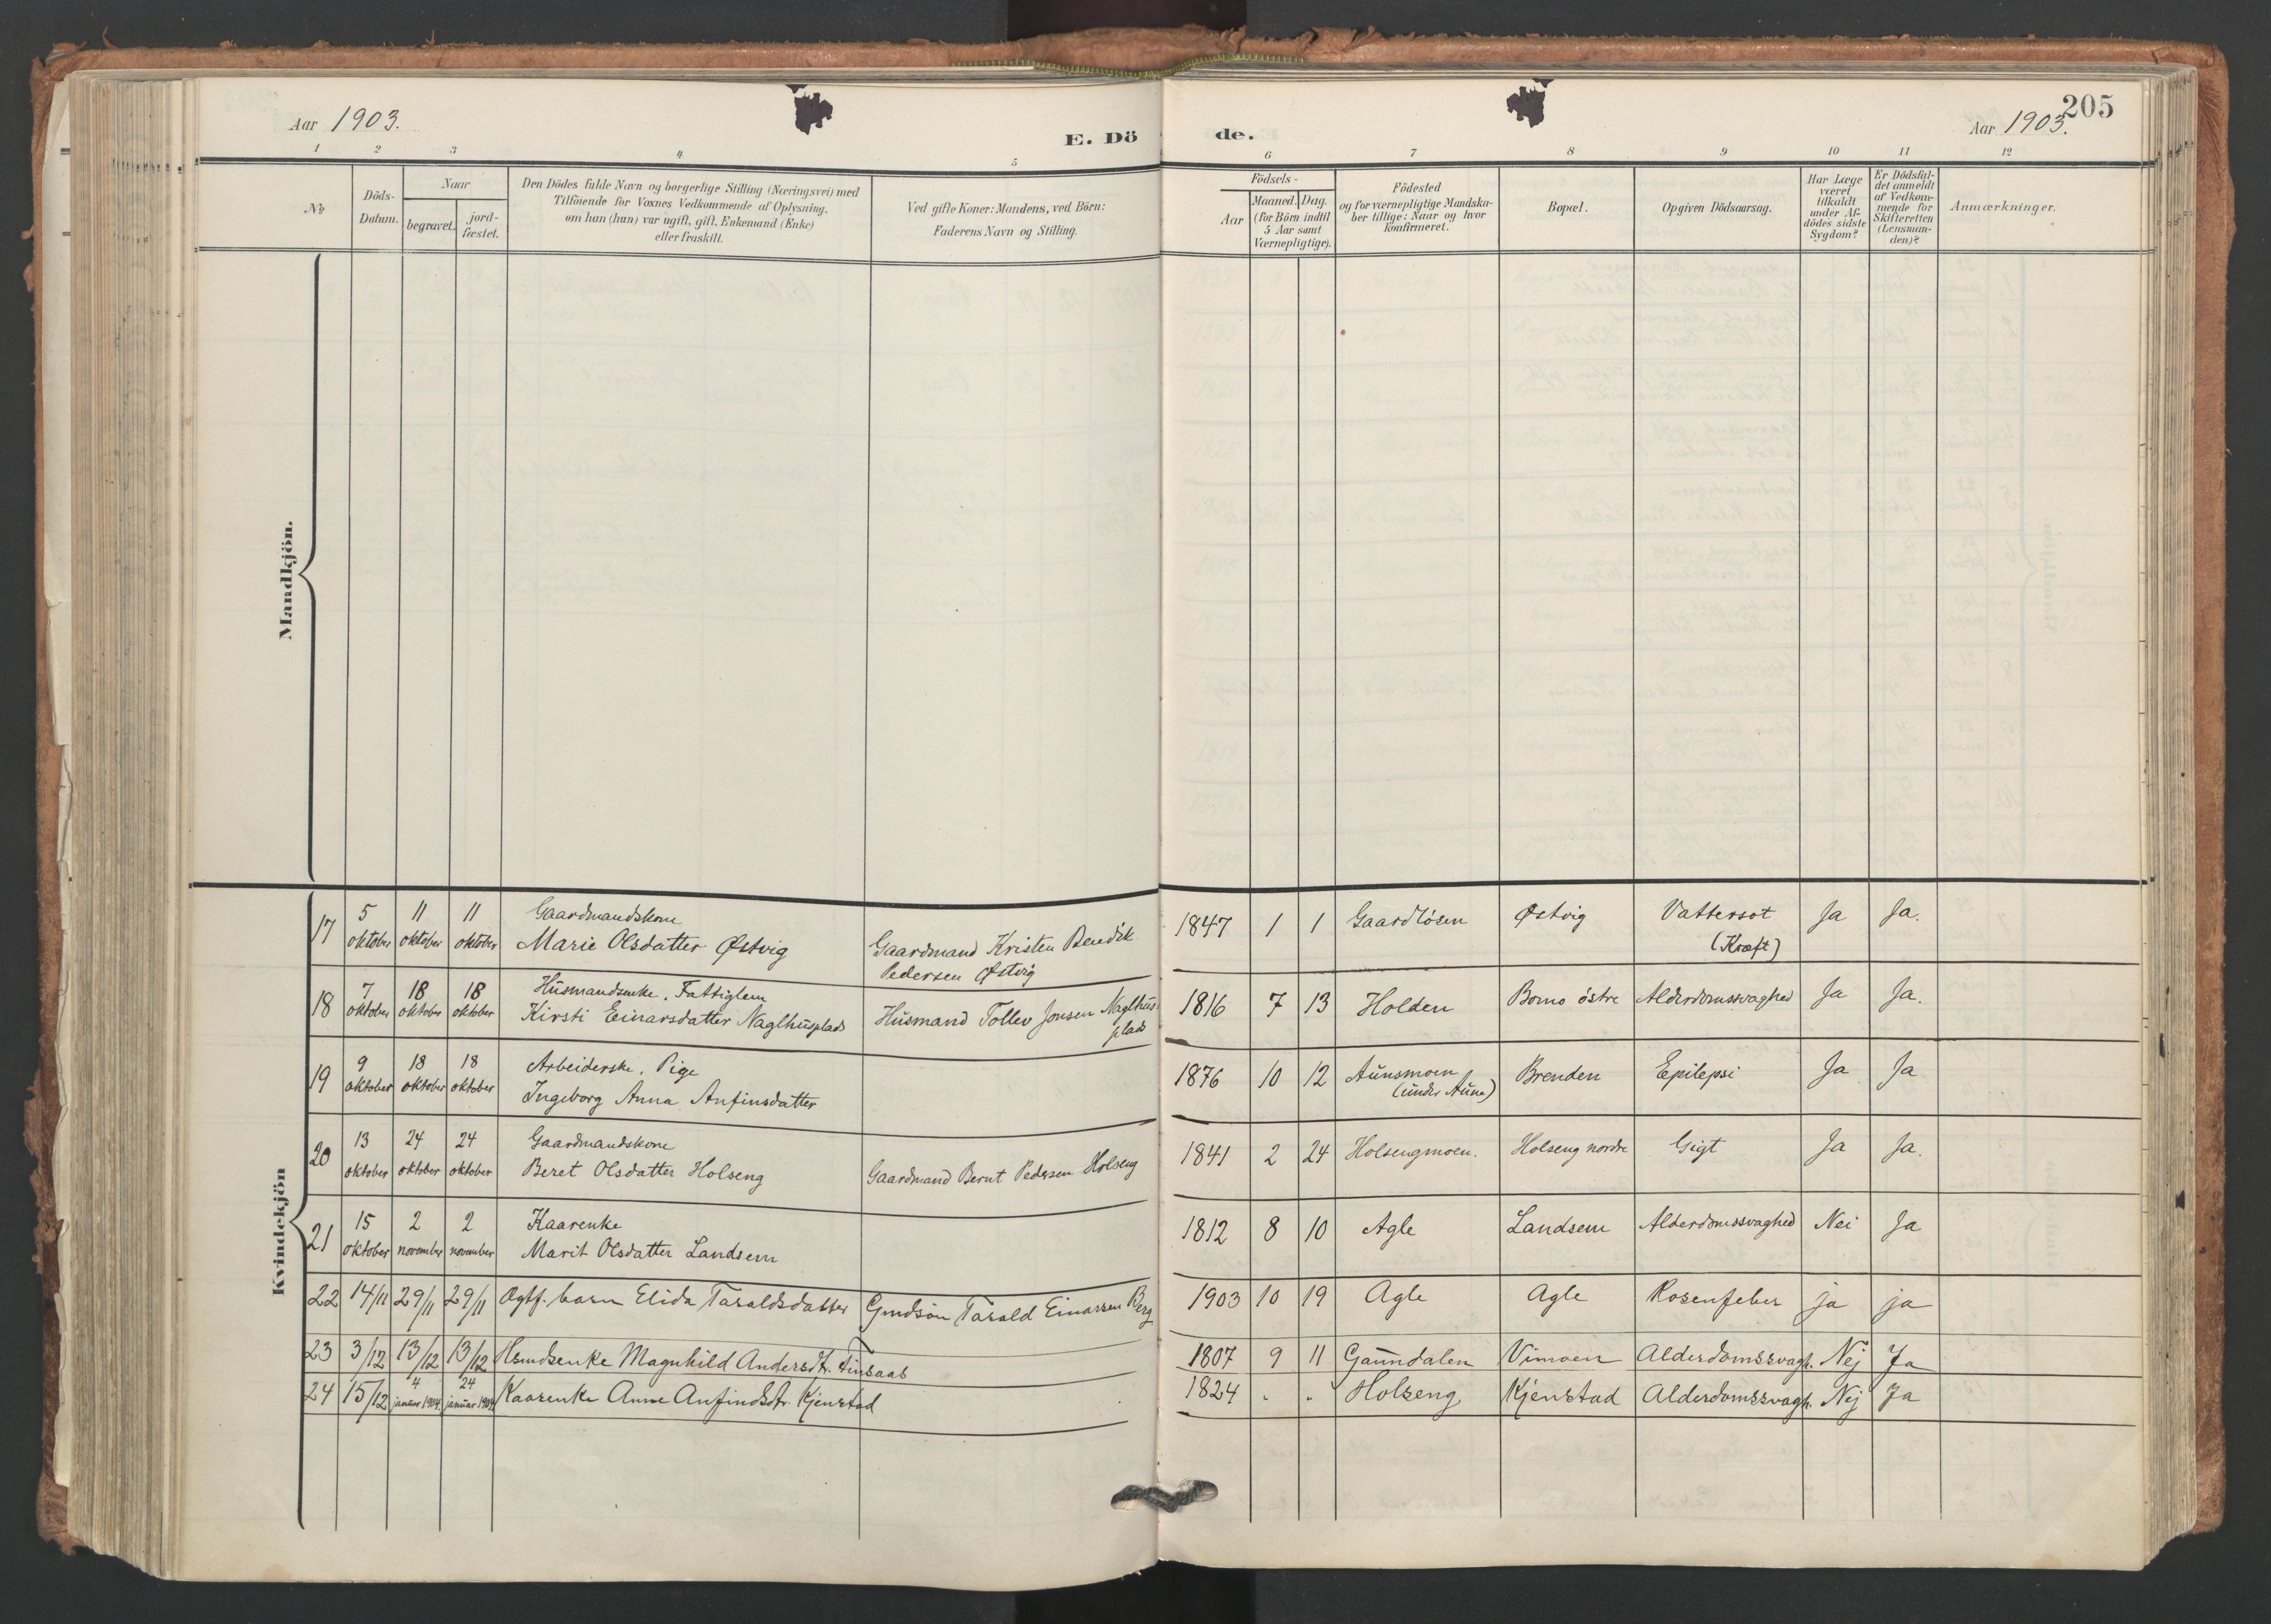 205
Aar 1903.
E. Dö
de.
Aar 1903.
1 2 3 4 5 6 7 8 9 10 11 12
№
Döds-
Datum.
Naar
begravet.
jord-
fæstet.
Den Dödes fulde Navn og borgerlige Stilling (Næringsvei) med
Tilföiende for Voxnes Vedkommende af Oplysning,
om han (hun) var ugift, gift, Enkemand (Enke)
eller fraskilt.
Ved gifte Koner: Mandens, ved Börn:
Faderens Navn og Stilling.
Födsels-
Aar
Maaned. Dag.
(for Börn indtil
5 Aar samt
Værnepligtige).
Födested
og for værnepligtige Mandska-
ber tillige: Naar og hvor
konfirmeret.
Bopæl.
Opgiven Dödsaarsag.
Har Læge
været
tilkaldt
under Af-
dödes sidste
Sygdom?
Er Dödsfal-
det anmeldt
af Vedkom-
mende for
Skifteretten
(Lensman-
den)?
Anmærkninger.
Mandkjön.
Kvindekjön
17 5 oktober 11 oktober 11 oktober Gaardmandskone
Marie Olsdatter Østvig
Gaardmand Kristen Bendik
Pedersen Østvig
1847 1 1 Gaardløsen Østvig Vattersot Ja Ja.
(Kræft)
18 7 oktober 18 oktober 18 oktober Husmandsenke. Fattiglem
Kirsti Einarsdatter Naglhusplads
Husmand Tollev Jonsen Naglhus-
plads
1816 7 13 Holden Bomo östre Alderdomssvaghed Ja Ja.
19 9 oktober 18 oktober 18 oktober Arbeiderske. Pige
Ingeborg Anna Anfinsdatter
1876 10 12 Aunsmoen Brenden Epilepsi Ja Ja
(under Aune)
20 13 oktober 24 oktober 24 oktober Gaardmandskone
Beret Olsdatter Holseng
Gaardmand Bernt Pedersen Holseng
1841 2 24 Holsengmoen. Holseng nordre Gigt Ja Ja.
21 15 oktober 2 november 2 november Kaarenke
Marit Olsdatter Landsem
1812 8 10 Agle Landsem Alderdomssvaghed Nei Ja
22 14/11 29/11 29/11 Ogtf. barn Elida Taraldsdatter Gmdsøn Tarald Einarsen Berg
1903 10 19 Agle Agle Rosenfeber ja ja
23 3/12 13/12 13/12 Hsmdsenke Magnhild Andersdt. Finsaas
1807 9 11 Gaundalen Vimoen Alderdomssvagh. Nej Ja
24 15/12 4 januar 1904. 24 januar 1904. Kaarenke Anne Anfindsdtr. Kjenstad
1824 . . Holseng Kjenstad Alderdomssvagh. Nej Ja